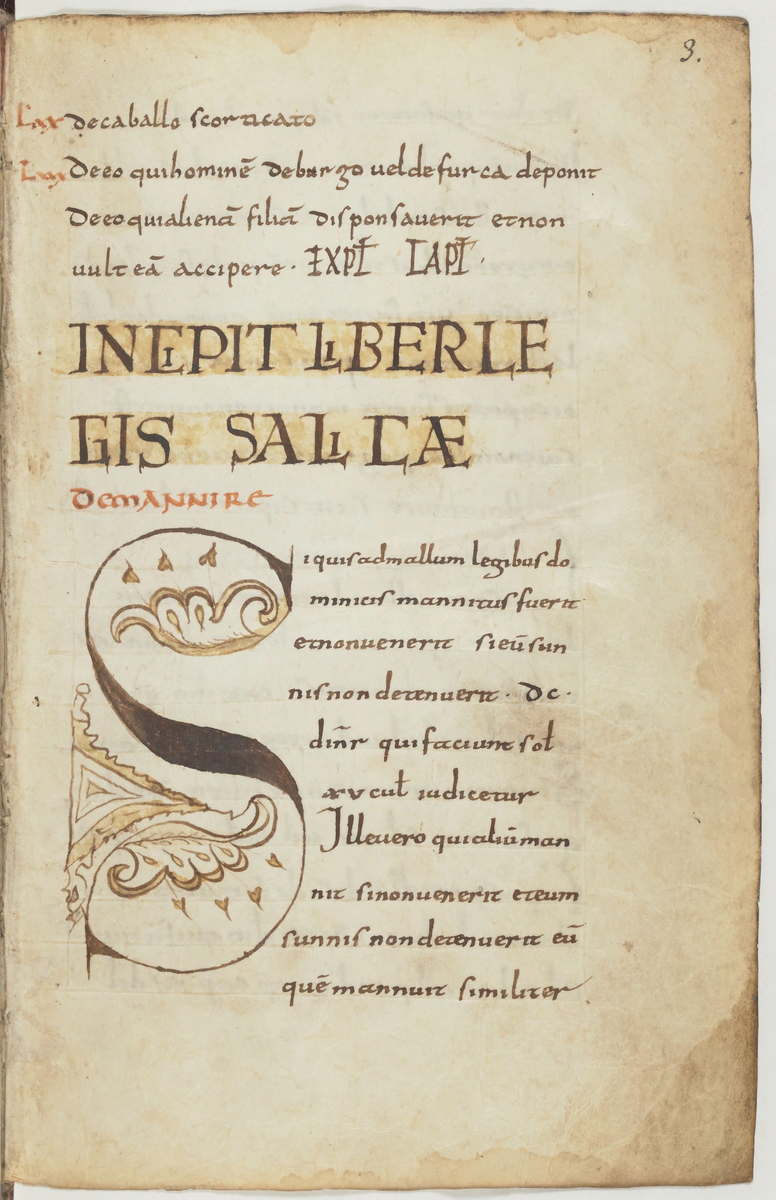 3.
Lxx De caballo scorticato
Lxxi De eo qui hominē de bargo vel de furca deponit
De eo qui alienā filiā disponsaverit et non
uult eā accipere · EXPŁ CAPŁ ·
INCIPIT LIBER LE
GIS SALICÆ
DE MANNIRE
Si quis ad mallum legibus do
minicis mannitus fuerit
et non venerit si eū sun
nis non detenuerit · Dc ·
dinr̄ qui faciunt sol̄
xv cul̄ iudicetur
Ille vero qui aliū man
nit si non venerit et eum
sunnis non detenuerit eū
quē mannuit similiter